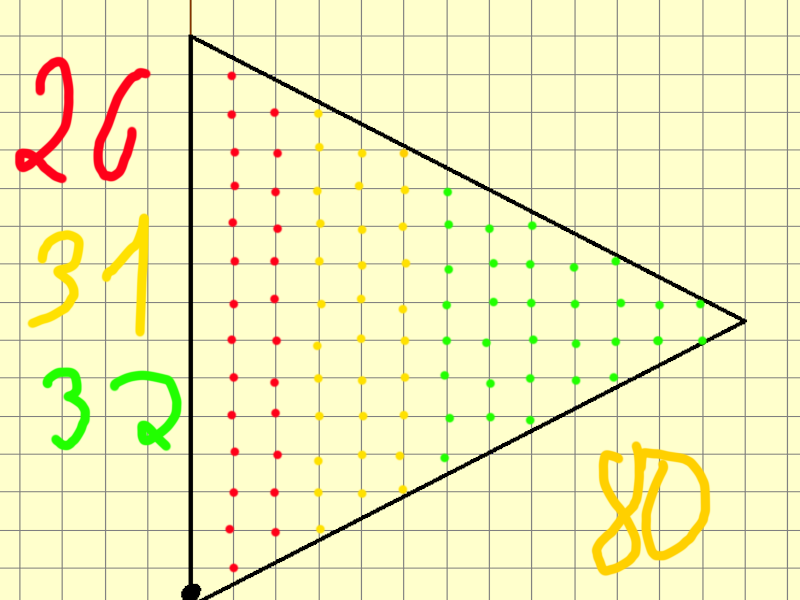 26
31
32
80